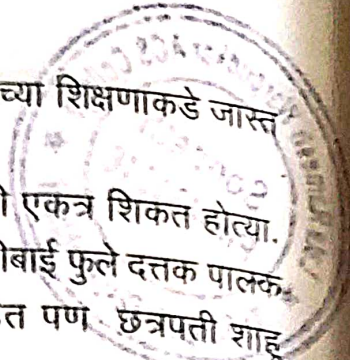 च्या शिक्षणाकडे जास्त
एकत्र शिकत होत्या.
फुले दत्तक पालक
त पण छत्रपती शाहू